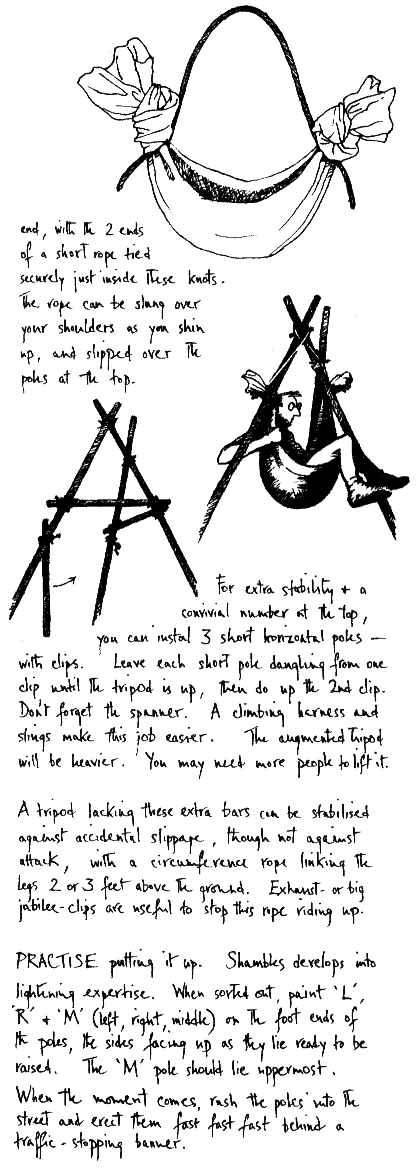 end, with the 2 ends
of a short rope tied
securely just inside these knots.
The rope can be slung over
your shoulders as you shin
up, and slipped over the
poles at the top.
For extra stability + a
convivial number at the top,
you can instal 3 short horizontal poles —
with clips. Leave each short pole dangling from one
clip until the tripod is up, then do up the 2nd clip.
Don't forget the spanner. A climbing harness and
slings make this job easier. The augmented tripod
will be heavier. You may need more people to lift it.
A tripod lacking these extra bars can be stabilised
against accidental slippage, though not against
attack, with a circumference rope linking the
legs 2 or 3 feet above the ground. Exhaust- or big
jubilee-clips are useful to stop this rope riding up.
PRACTISE putting it up. Shambles develops into
lightening expertise. When sorted out, paint 'L',
'R' + 'M' (left, right, middle) on the foot ends of
the poles, the sides facing up as they lie ready to be
raised. The 'M' pole should lie uppermost.
When the moment comes, rush the poles into the
street and erect them fast fast fast behind a
traffic-stopping banner.